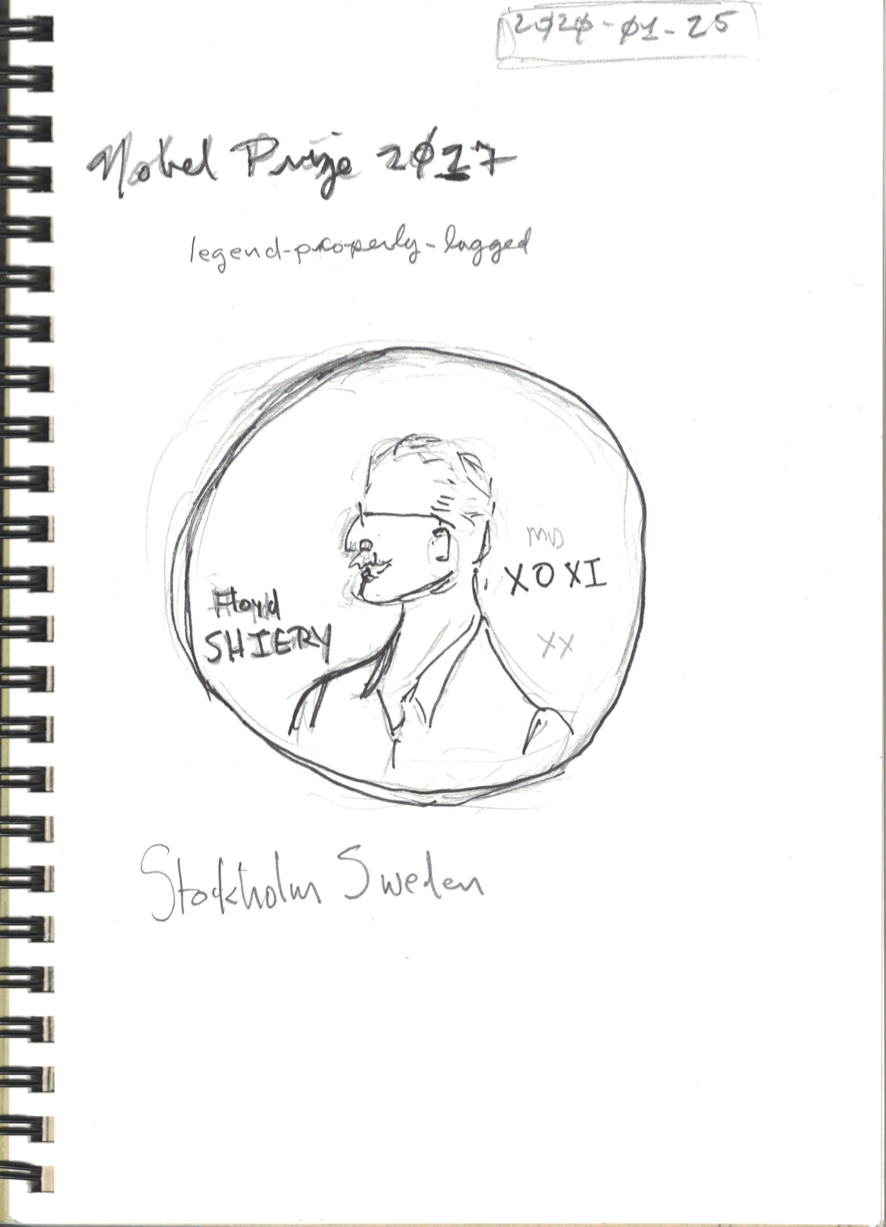 2020-01-25
Nobel Prize 2017
legend-properly-logged
Floyd
SHIERY
MD
XOXI
XX
Stockholm Sweden